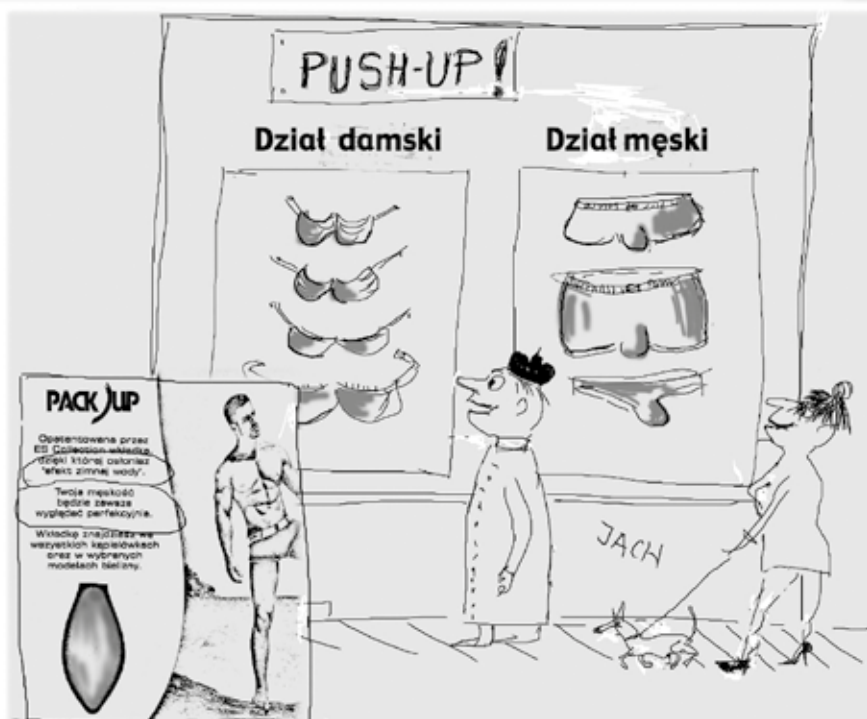 PUSH-UP!
Dział damski
Dział męski
PACK UP
Opatentowana przez
ES Collection wkładka,
dzięki której osłonisz
"efekt zimnej wody".
Twoja męskość
będzie zawsze
wyglądać perfekcyjnie.
Wkładkę znajdziesz we
wszystkich kąpielówkach
oraz w wybranych
modelach bielizny.
JACH